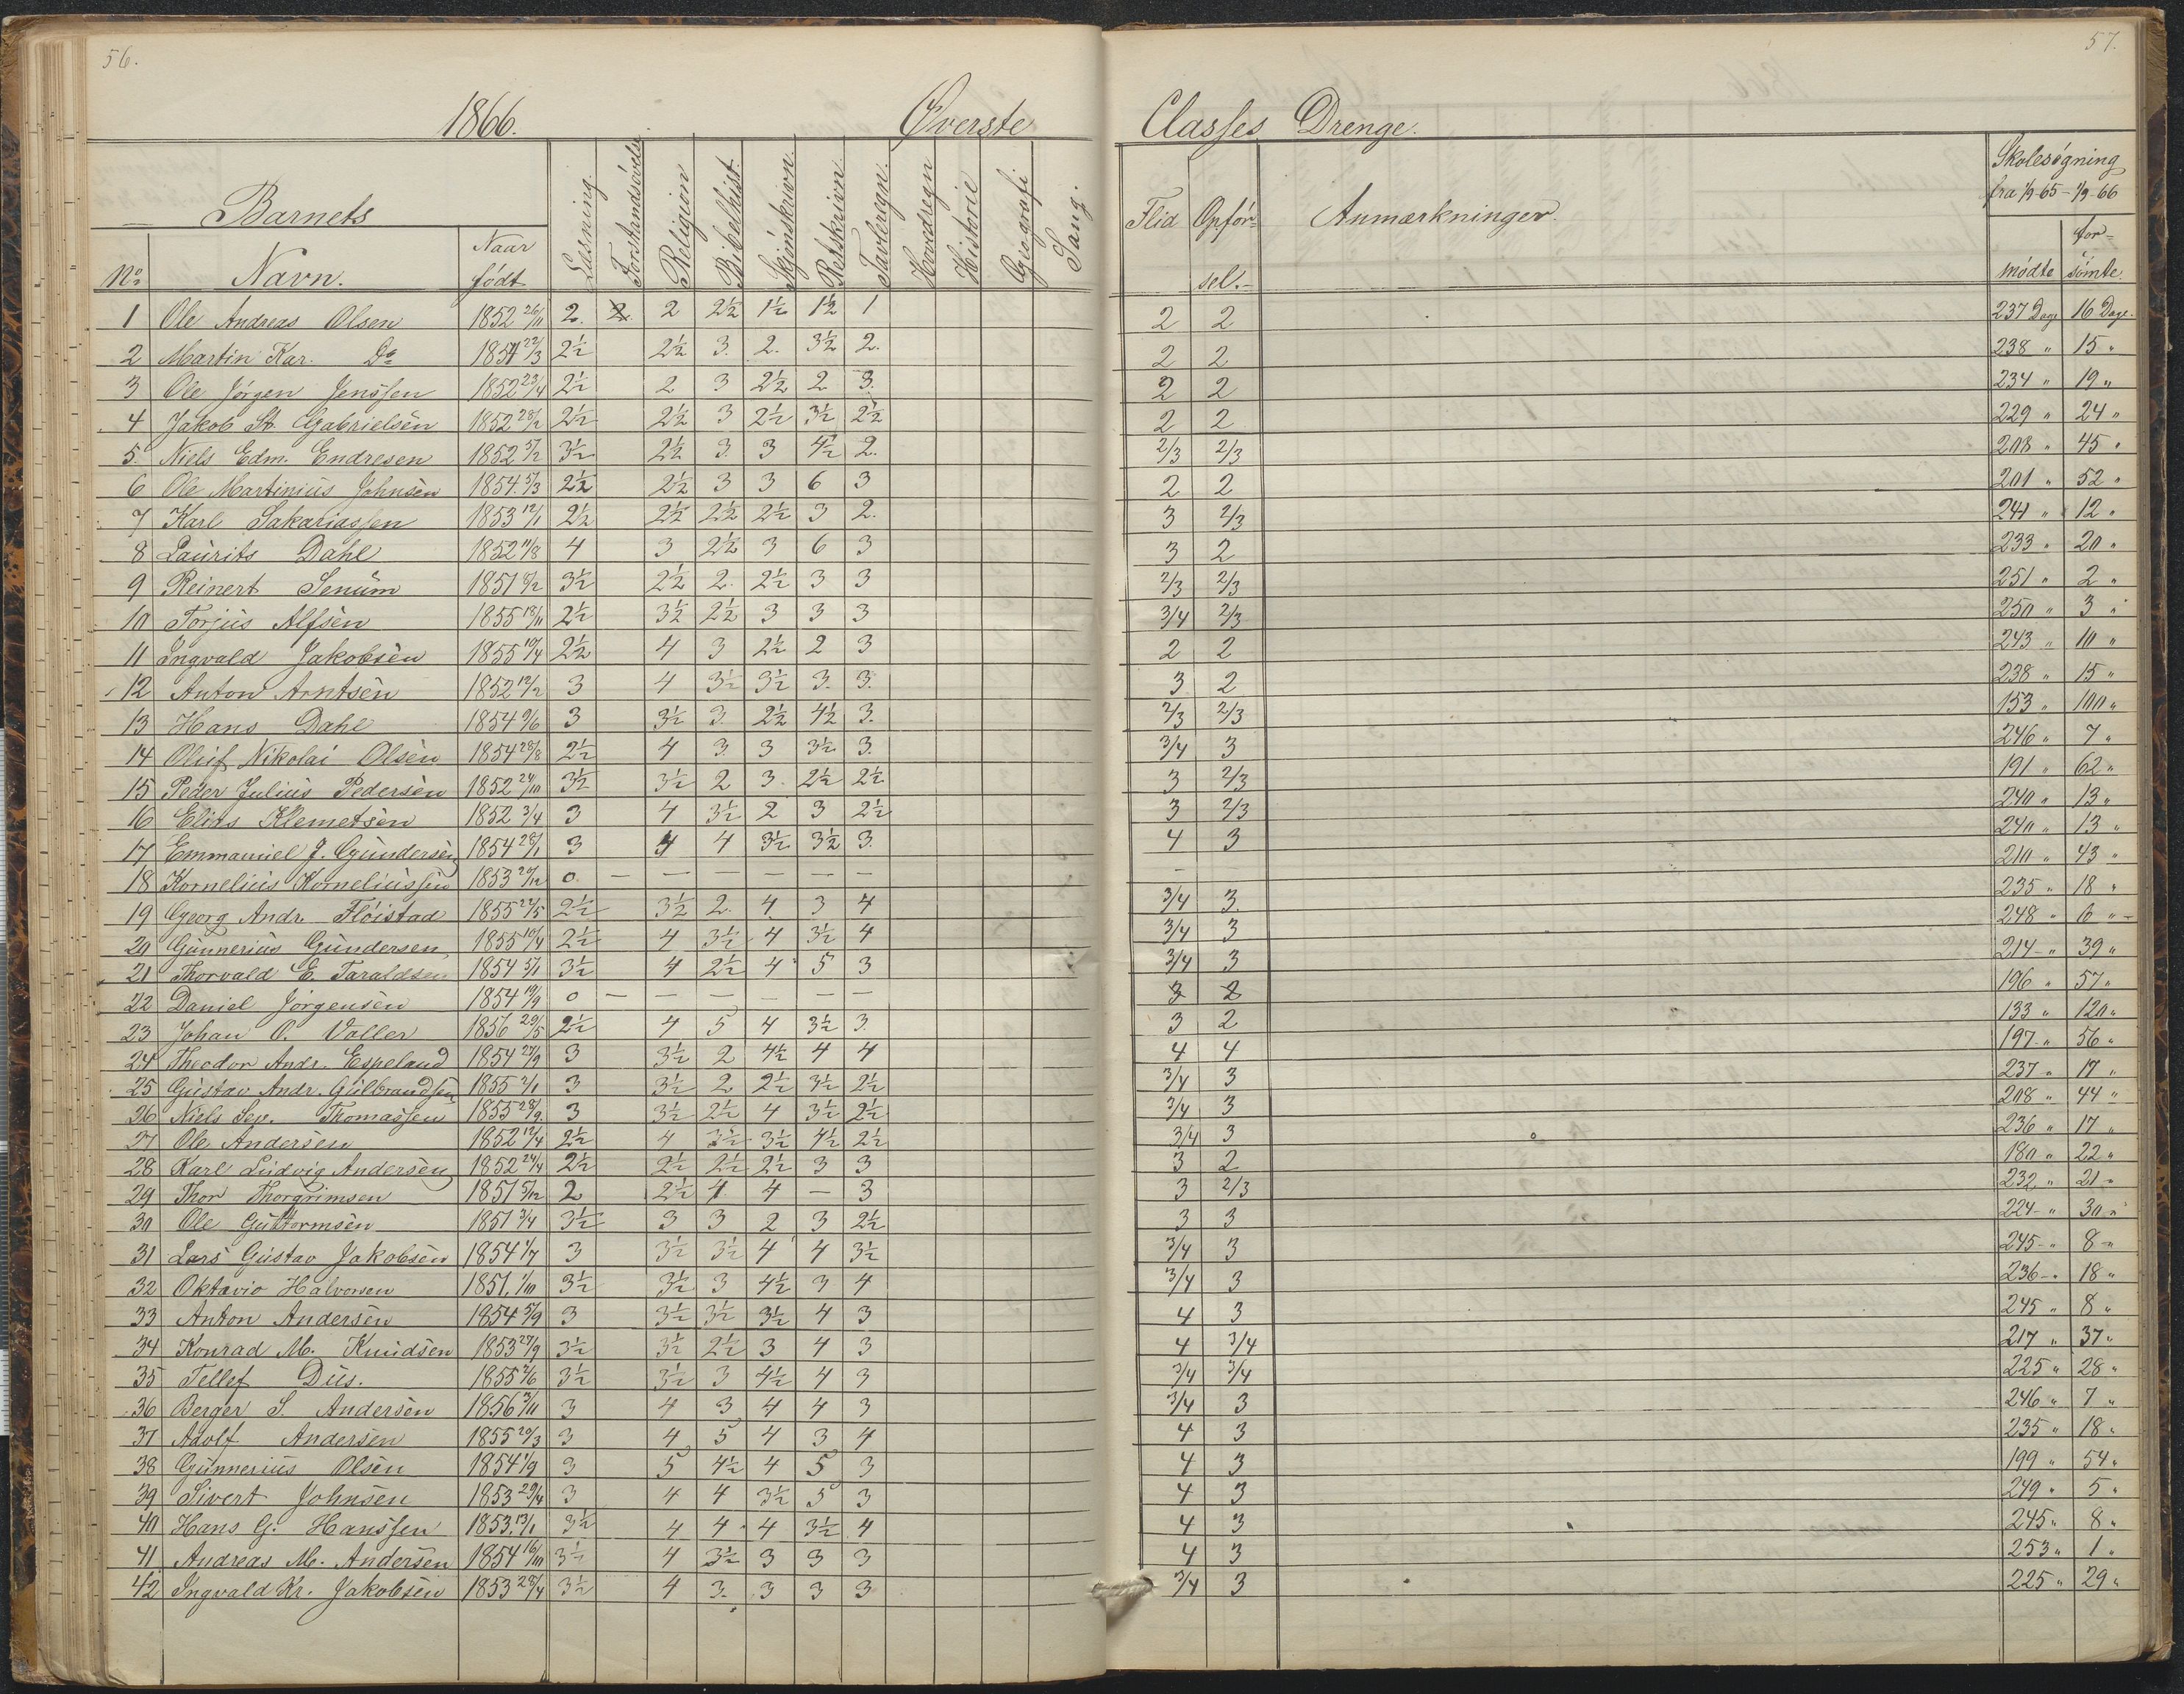 56.
57.
1866. Øverste Classes Drenge.
Barnets
No Navn. Naar født Læsning. Forstandsøvelse Religion Bibelhist. Skjønskrivn. Retskrivn. Tavleregn. Hovedregn Historie Geografi Sang. Flid Opførsel.- Anmærkninger. Skolesøgning fra 1/9-65 - 1/9-66 mødte forsømte.
1 Ole Andreas Olsen 1852 26/11 2. 2. 2 2½ 1½ 1½ 1 2 2 237 Dage 16 Dage.
2 Martin Kar. Do 1854 22/3 2½ 2½ 3. 2. 3½ 2. 2 2 238 " 15 "
3 Ole Jørgen Jenssen 1852 23/4 2½ 2 3 2½ 2 3. 2 2 234 " 19 "
4 Jakob St. Gabrielsen 1852 28/2 2½ 2½ 3 2½ 3½ 2½ 2 2 229 " 24 "
5. Niels Edm. Endresen 1852 5/2 3½ 2½ 3. 3 4½ 2. 2/3 2/3 208 " 45 "
6 Ole Martinius Johnsen 1854. 5/3 2½ 2½ 3 3 6 3 2 2 201 " 52 "
7 Karl Sakariassen 1853 12/1 2½ 2½ 2½ 2½ 3 2. 3 2/3 241 " 12 "
8 Laurits Dahl 1852 11/8 4 3 2½ 3 6 3 3 2 233 " 20 "
9 Reinert Senum 1851 8/12 3½ 2½ 2. 2½ 3 3 2/3 2/3 251 " 2 "
10 Torjus Alfsen 1855 18/11 2½ 3½ 2½ 3 3 3 3/4 2/3 250 " 3 "
11 Ingvald Jakobsen 1855 10/4 2½ 4 3 2½ 2 3 2 2 243 " 10 "
12 Anton Arntsen 1852 12/2 3 4 3½ 3½ 3. 3. 3 2 238 " 15 "
13 Hans Dahl 1854 9/6 3 3½ 3. 2½ 4½ 3. 2/3 2/3 153 " 100 "
14 Oluf Nikolai Olsen 1854 28/8 2½ 4 3. 3 3½ 3. 3/4 3 246 " 7 "
15 Peder Julius Pedersen 1852 24/10 3½ 3½ 2 3. 2½ 2½ 3 2/3 191 " 62 "
16 Elias Klemetsen 1852 3/4 3 4 3½ 2 3 2½ 3 2/3 240 " 13 "
17 Emmanuel J. Gundersen 1854 28/1 3 4 4 3½ 3½ 3. 4 3 240 " 13 "
18 Kornelius Korneliussen 1853 20/12 0 — — — — — — – 210 " 43 "
19 Georg Andr. Fløistad 1855 24/5 2½ 3½ 2. 4 3 4 3/4 3. 235 " 18 "
20 Gunnerius Gundersen 1855 10/4 2½ 4 3½ 4 3½ 4 3/4 3 248 " 6 "
21 Thorvald E. Taraldsen 1854 5/1 3½ 4 2½ 4 5 3 3/4 3 214 " 39 "
22 Daniel Jørgensen 1854 19/9 0 — — — — — — 3 2 196 " 57 "
23 Johan O. Valler 1856 29/5 2½ 4 5 4 3½ 3. 3 2 133 " 120 "
24 Theodor Andr. Espeland 1854 27/9 3 3½ 2 4½ 4 4 4 4 197 " 56 "
25 Gustav Andr. Gulbrandsen 1855 2/1 3 3½ 2 2½ 3½ 2½ 3/4 3 237 " 17 "
26 Niels Sev. Thomassen 1855 28/9 3 3½ 2½ 4 3½ 2½ 3/4 3 208 " 44 "
27 Ole Andersen 1852 12/4 2½ 4 3½ 3½ 4½ 2½ 3/4 3 236 " 17 "
28 Karl Ludvig Andersen 1852 24/4 2½ 2½ 2½ 2½ 3 3 3 2 180 " 22 "
29 Thor Thorgrimsen 1851 5/12 2 2½ 4 4 — 3 3 2/3 232 " 21 "
30 Ole Guttormsen 1851 3/4 3½ 3 3 2 3 2½ 3 3 224 " 30 "
31 Lars Gustav Jakobsen 1854 1/7 3 3½ 3½ 4 4 3½ 3/4 3 245 " 8 "
32 Oktavio Halvorsen 1851. 1/10 3½ 3½ 3 4½ 3 4 3/4 3 236 " 18 "
33 Anton Andersen 1854 5/9 3 3½ 3½ 3½ 4 3 4 3 245 " 8 "
34 Konrad M. Knudsen 1853 27/9 3½ 3½ 2½ 3 4 3 4 3/4 217 " 37 "
35 Tellef Dus. 1855 2/6 3½ 3½ 3 4½ 4 3 3/4 3/4 225 " 28 "
36 Berger S. Andersen 1856 3/11 3 4 3 4 4 3 3/4 3 246 " 7 "
37 Adolf Andersen 1855 20/3 3 4 5 4 3 4 4 3 235 " 18 "
38 Gunnerius Olsen 1854 1/9 3 5 4½ 4 5 3 4 3 199 " 54 "
39 Sivert Johnsen 1853 29/4 3 4 4 3½ 5 3 4 3 249 " 5 "
40 Hans G. Hanssen 1853. 13/1 3½ 4 4 4 3½ 4 4 3 245 " 8 "
41 Andreas M. Andersen 1854 16/10 3½ 4 3½ 3 3 3 4 3 253 " 1 "
42 Ingvald Kr. Jakobsen 1853 28/4 3½ 4 3. 3 3 3 3/4 3 225 " 29 "